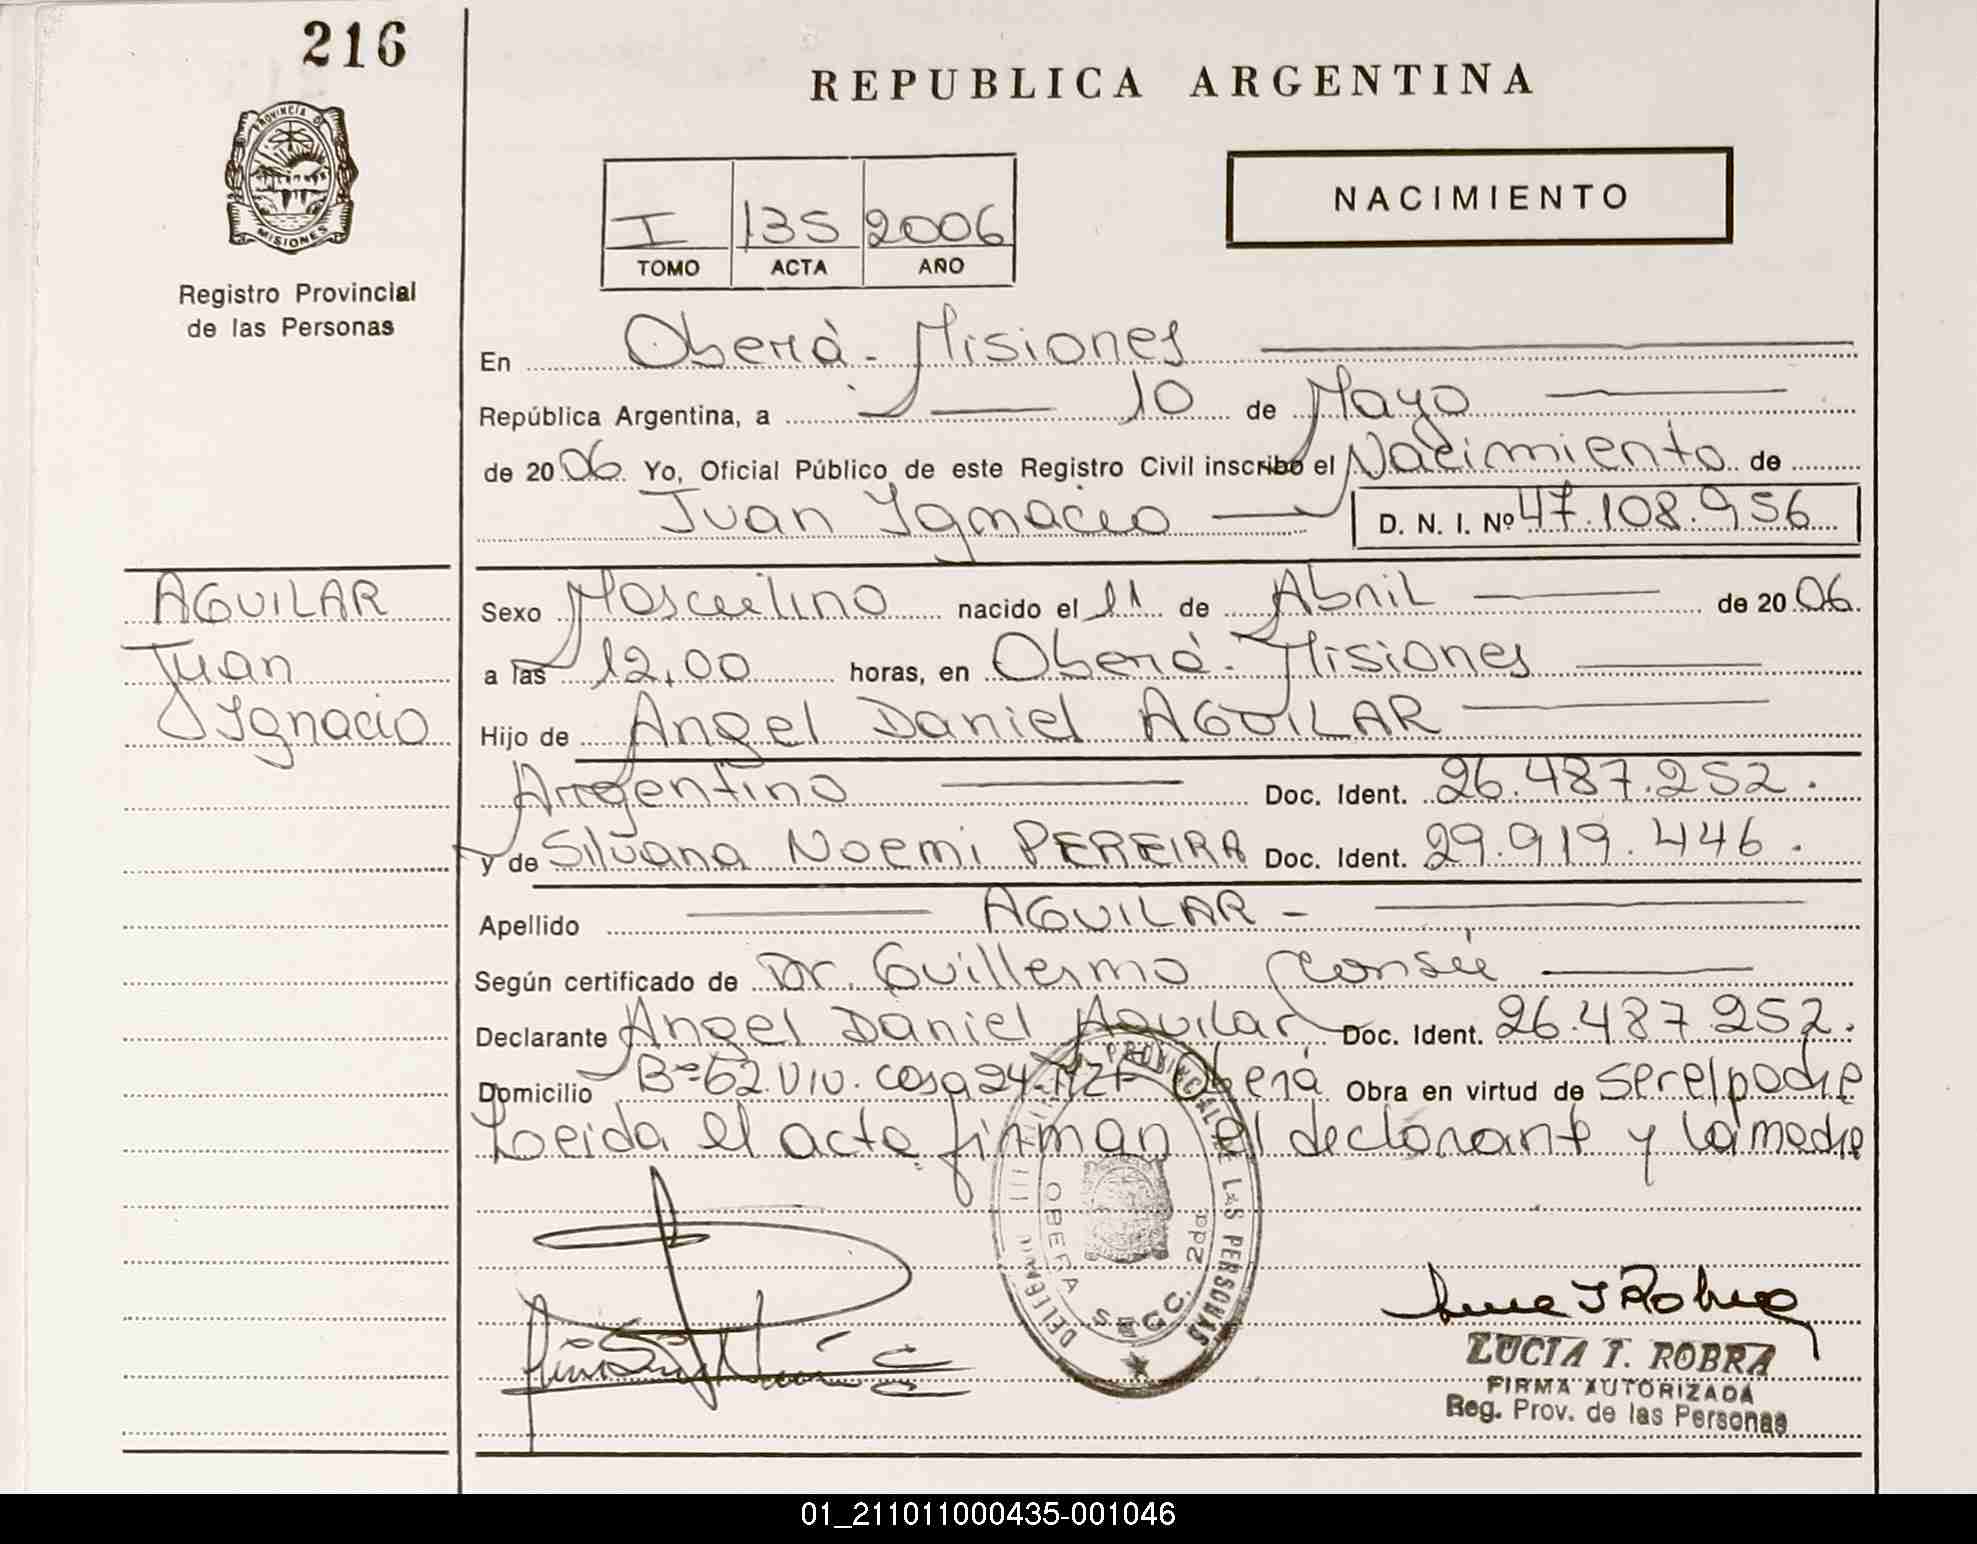 216
REPUBLICA ARGENTINA
PROVINCIA DE
MISIONES
NACIMIENTO
I 135 2006
TOMO ACTA AÑO
Registro Provincial
de las Personas
En Oberà - Misiones
República Argentina, a 10 de Mayo
de 2006 Yo, Oficial Público de este Registro Civil inscribo el Nacimiento de
Juan Ignacio D. N. I. Nº 47.108.956
AGUILAR
Juan
Ignacio
Sexo Masculino nacido el 11 de Abril de 2006.
a las 12,00 horas, en Oberá - Misiones
Hijo de Angel Daniel AGUILAR
Argentino Doc. Ident. 26.487.252.
y de Silvana Noemi PEREIRA Doc. Ident. 29.919.446.
Apellido AGUILAR -
Según certificado de Dr. Guillermo
Declarante Angel Daniel Aguilar Doc. Ident. 26.487.252.
Domicilio Bº 62 Viv. casa 24- Oberá Obra en virtud de ser el padre
Leida el acta firman el declarante y la madre
PROVINCIAL DE LAS PERSONAS
OBERA SECC. 2da
LUCIA T. ROBRA
FIRMA AUTORIZADA
Reg. Prov. de las Personas
01_211011000435-001046